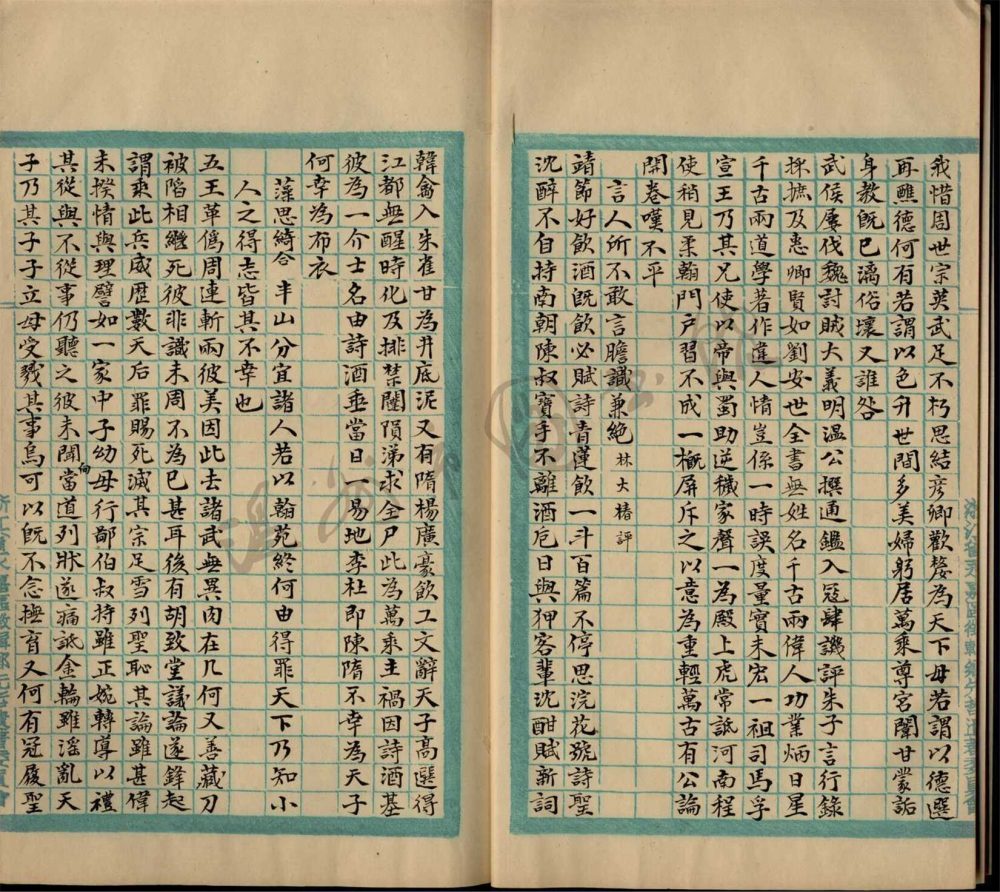 我惜周世宗英武足不朽思結彥卿歡嫠為天下母若謂以德選
再醮德何有若謂以色升世間多美婦躬居萬乘尊宮闈甘蒙詬
身教既已漓俗壞又誰咎
武侯屢伐魏討賊大義明溫公撰通鑑入寇肆譏評朱子言行錄
採摭及惠卿賢如劉安世全書無姓名千古兩偉人功業炳日星
千古兩道學著作違人情豈係一時誤度量實未宏一祖司馬孚
宣王乃其兄使以帝與蜀助逆穢家聲一為殿上虎常詆河南程
使稍見柔翰門戶習不成一概屏斥之以意為重輕萬古有公論
開卷嘆不平
言人所不敢言膽識兼絕 林大椿評
靖節好飲酒既飲必賦詩青蓮飲一斗百篇不停思浣花號詩聖
沈醉不自持南朝陳叔寶手不離酒卮日與狎客輩沈酣賦新詞
韓禽入朱雀甘為井底泥又有隋楊廣豪飲工文辭天子高選得
江都無醒時化及排禁闥隕涕求全尸此為萬乘主禍因詩酒基
彼為一介士名由詩酒垂當日一易地李杜即陳隋不幸為天子
何幸為布衣
藻思綺合 半山分宜諸人若以翰苑終何由得罪天下乃知小
人之得志皆其不幸也
五王革偽周連斬兩彼美因此去諸武無異肉在几何又善藏刀
被陷相繼死彼非識未周不為已甚耳後有胡致堂議論遂鋒起
謂乘此兵威歷數天后罪賜死滅其宗足雪列聖恥其論雖甚偉
未揆情與理譬如一家中子幼母行鄙伯叔持雖正婉轉導以禮
其從與不從事仍聽之彼未聞當向道列狀遂痛詆金輪雖淫亂天
子乃其子子立母受戮其事烏可以既不念撫育又何有冠履聖